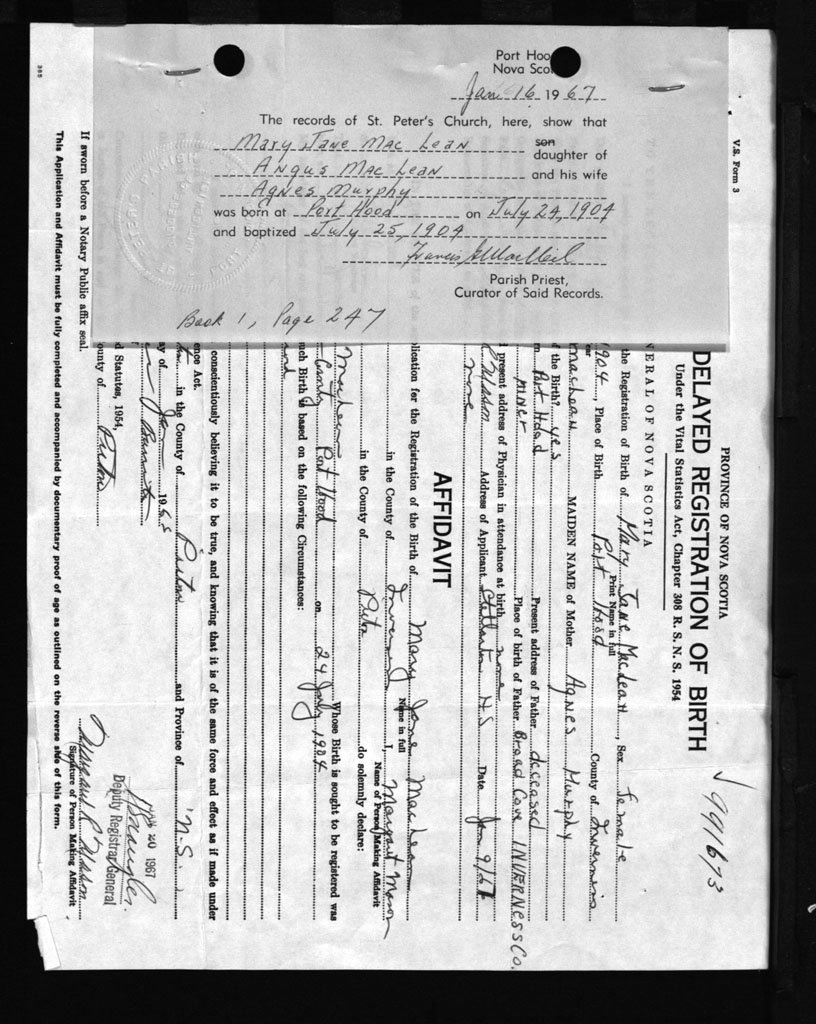 Port Hoo
Nova Sco
Jan 16 1967
The records of St. Peter's Church, here, show that
Mary Jane Mac Lean son
daughter of
Angus Mac Lean and his wife
Agnes Murphy
was born at Port Hood on July 24, 1904
and baptized July 25, 1904
Francis
Parish Priest,
Curator of Said Records.
Book 1, Page 247
V.S. Form 3
PROVINCE OF NOVA SCOTIA
DELAYED REGISTRATION OF BIRTH
Under the Vital Statistics Act, Chapter 308 R. S. N. S. 1954
√ 991673
NERAL OF NOVA SCOTIA
the Registration of Birth of Mary Jane MacLean, Sex female
Print Name in full
1904, Place of Birth Port Hood County of Inverness
MacLean MAIDEN NAME of Mother Agnes Murphy
f the Birth? yes
n Port Hood Present address of Father deceased
Miner Place of birth of Father Broad Cove INVERNESS CO.
l present address of Physician in attendance at birth none
Address of Applicant Stellarton N S Date Jan 9/67
none
AFFIDAVIT
plication for the Registration of the Birth of Mary Jane MacLean
Name in full
in the County of Inverness I, Margaret Mason
Name of Person Making Affidavit
in the County of Pictou do solemnly declare:
Whose Birth is sought to be registered was
County Port Hood on 24 July 1904
uch Birth is based on the following Circumstances:
conscientiously believing it to be true, and knowing that it is of the same force and effect as if made under
ence Act.
in the County of Pictou and Province of N.S.
ay of Jan 1968
d Statutes, 1954,
ounty of Pictou
20 1967
Deputy Registrar General
Signature of Person Making Affidavit
If sworn before a Notary Public affix seal.
This Application and Affidavit must be fully completed and accompanied by documentary proof of age as outlined on the reverse side of this form.